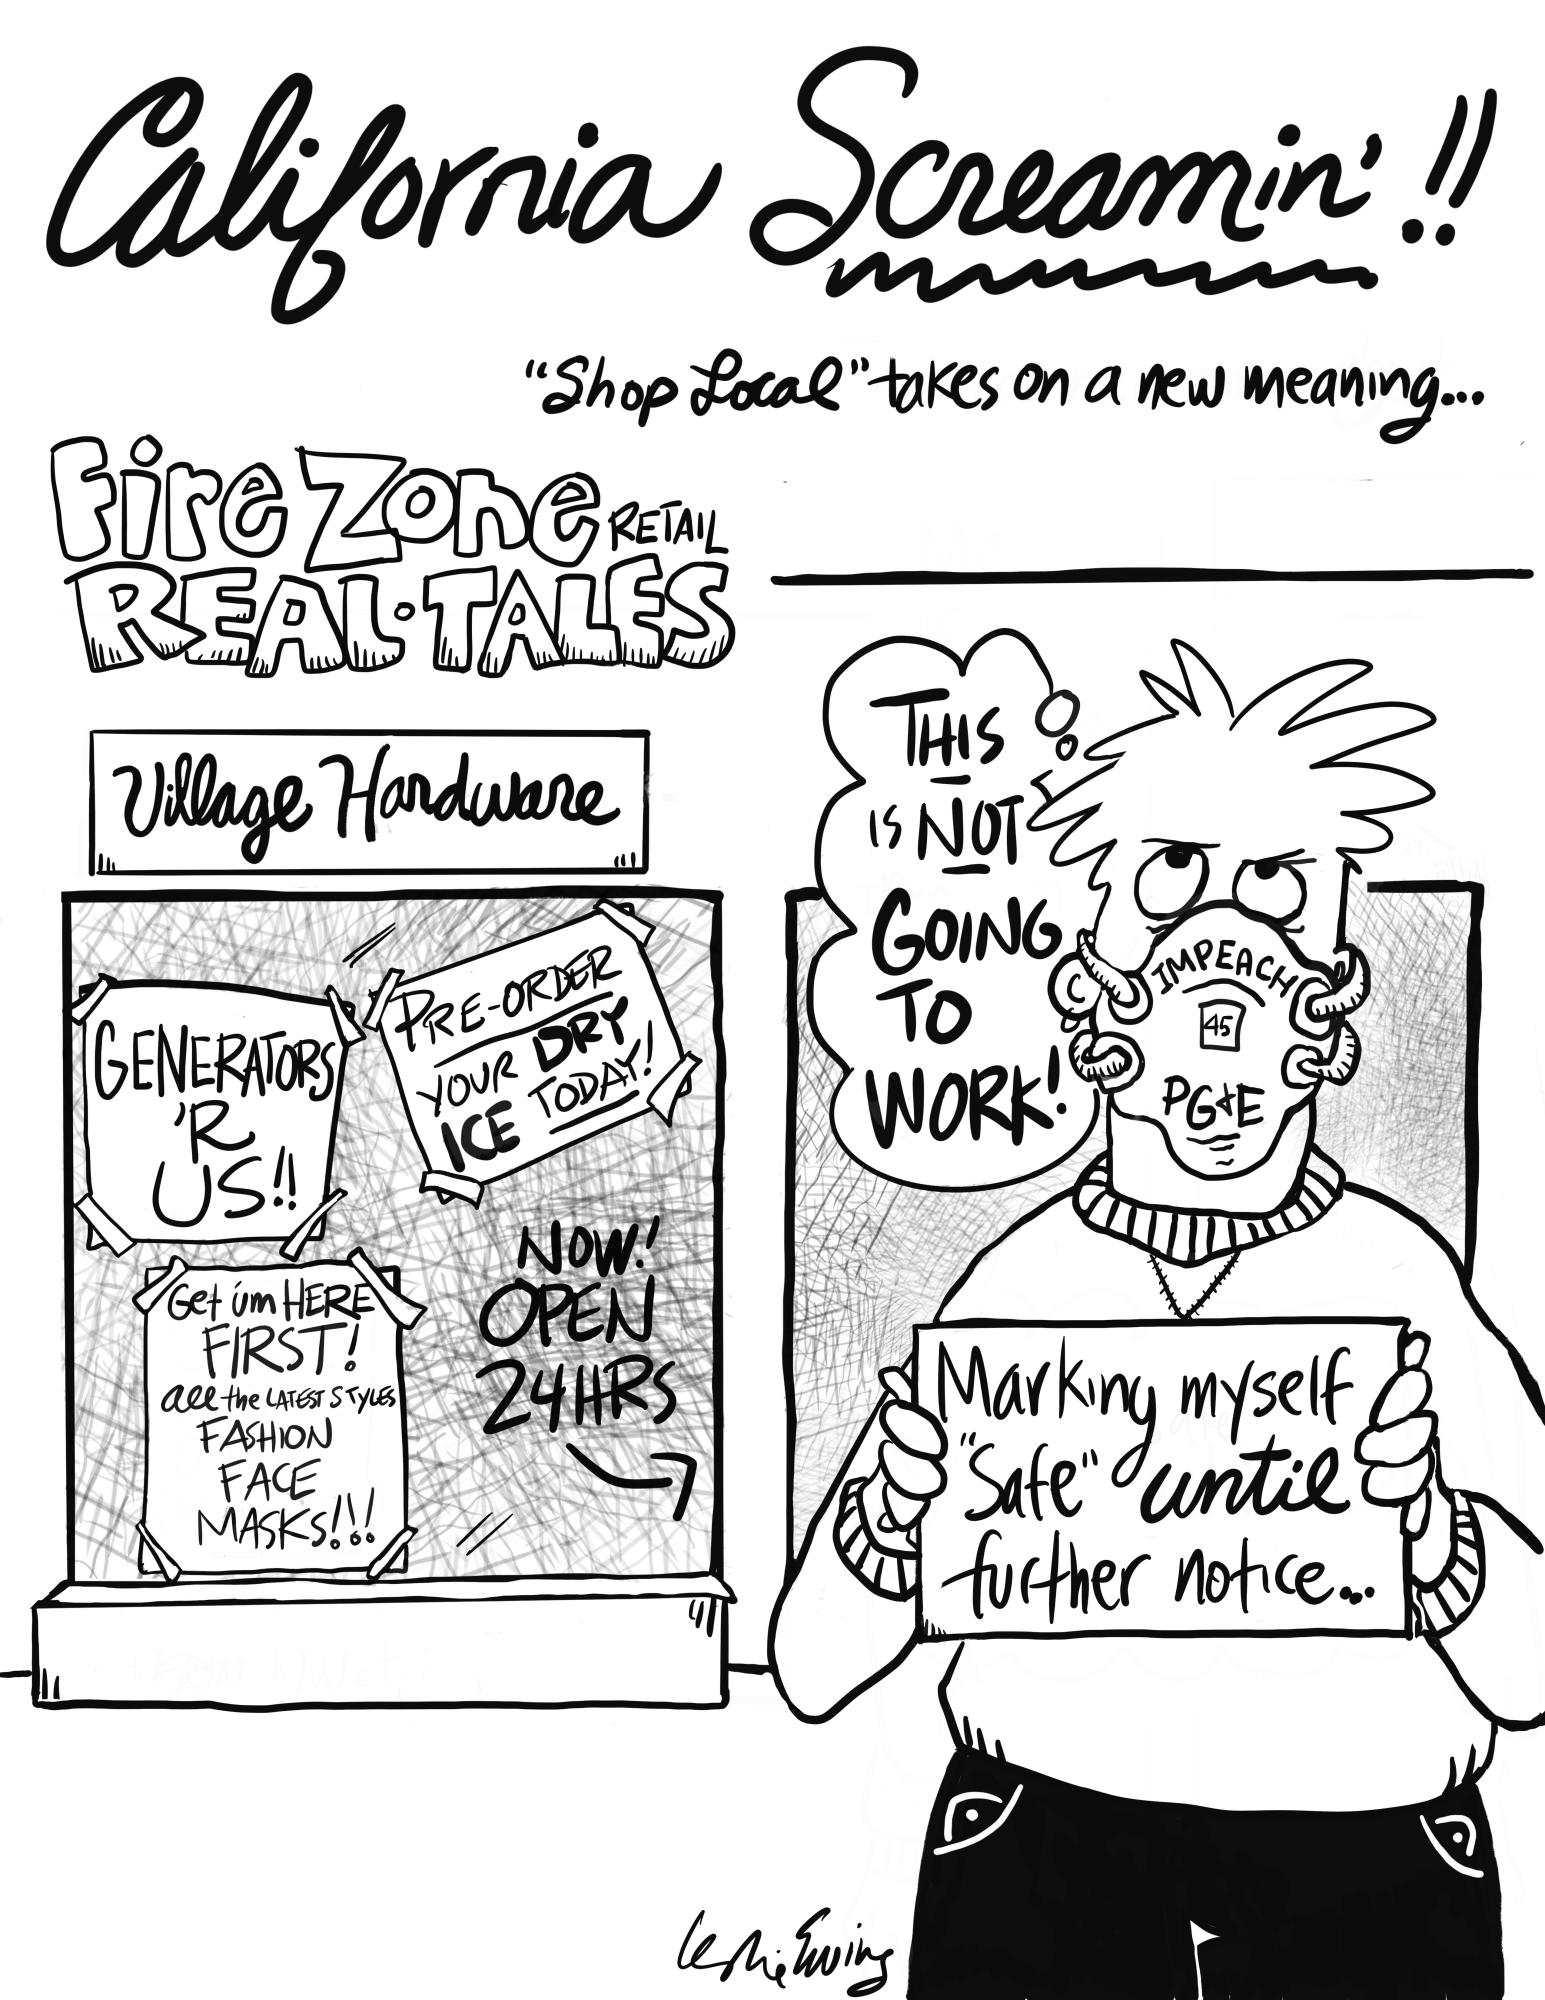 California Screamin' !!
"Shop Local" takes on a new meaning...
Fire Zone RETAIL
REAL·TALES
Village Hardware
GENERATORS
'R
US!!
PRE-ORDER
YOUR DRY
ICE TODAY!
Get üm HERE
FIRST!
all the LATEST STYLES
FASHION
FACE
MASKS!!!
NOW!
OPEN
24HRS
THIS
IS NOT
GOING
TO
WORK!
IMPEACH
45
PG&E
Marking myself
"Safe" until
further notice...
Leslie Ewing